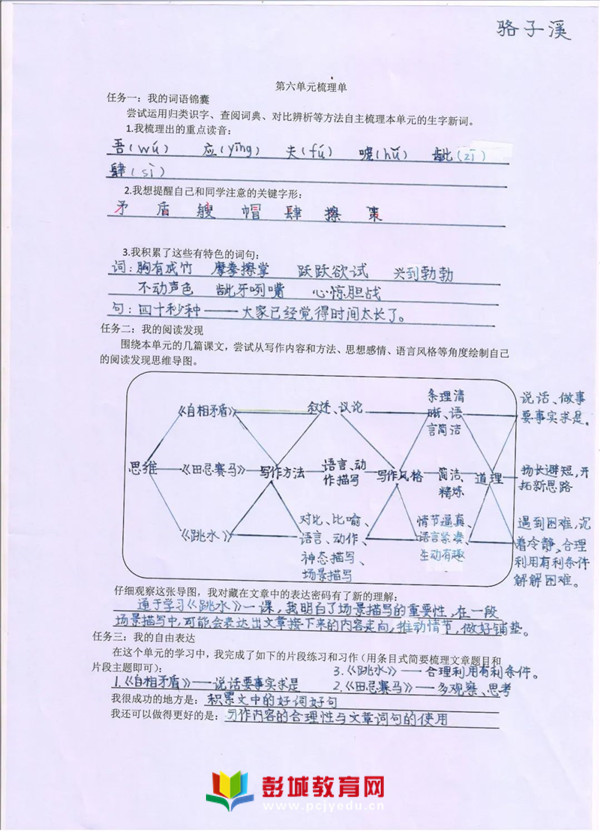 骆子溪
第六单元梳理单
任务一：我的词语锦囊
尝试运用归类识字、查阅词典、对比辨析等方法自主梳理本单元的生字新词。
1.我梳理出的重点读音：
吾(wú) 应(yīng) 夫(fú) 唬(hǔ) 龇(zī)
肆(sì)
2.我想提醒自己和同学注意的关键字形：
矛 盾 艘 帽 肆 擦 策
3.我积累了这些有特色的词句：
词：胸有成竹 摩拳擦掌 跃跃欲试 兴致勃勃
不动声色 龇牙咧嘴 心惊胆战
句：四十秒钟——大家已经觉得时间太长了。
任务二：我的阅读发现
围绕本单元的几篇课文，尝试从写作内容和方法、思想感情、语言风格等角度绘制自己
的阅读发现思维导图。
思维
《自相矛盾》
《田忌赛马》
《跳水》
写作方法
叙述、议论
语言、动
作描写
对比、比喻、
语言、动作、
神态描写、
场景描写
写作风格
条理清
晰、语
言简洁
简洁
精炼
情节逼真、
生动有趣
道理
说话、做事
要事实求是。
扬长避短，开
拓新思路
遇到困难，沉
着冷静，合理
利用有利条件
解解困难。
仔细观察这张导图，我对藏在文章中的表达密码有了新的理解：
通于学习《跳水》一课，我明白了场景描写的重要性，在一段
场景描写中，可能会表达出文章接下来的内容走向，推动情节，做好铺垫。
任务三：我的自由表达
在这个单元的学习中，我完成了如下的片段练习和习作（用条目式简要梳理文章题目和
片段主题即可）：
1.《自相矛盾》——说话要事实求是
2.《田忌赛马》——多观察、思考
3.《跳水》——合理利用有利条件。
我很成功的地方是：积累文中的好词好句
我还可以做得更好的是：写作内容的合理性与文章词句的使用
彭城教育网
www.pcjyedu.cn